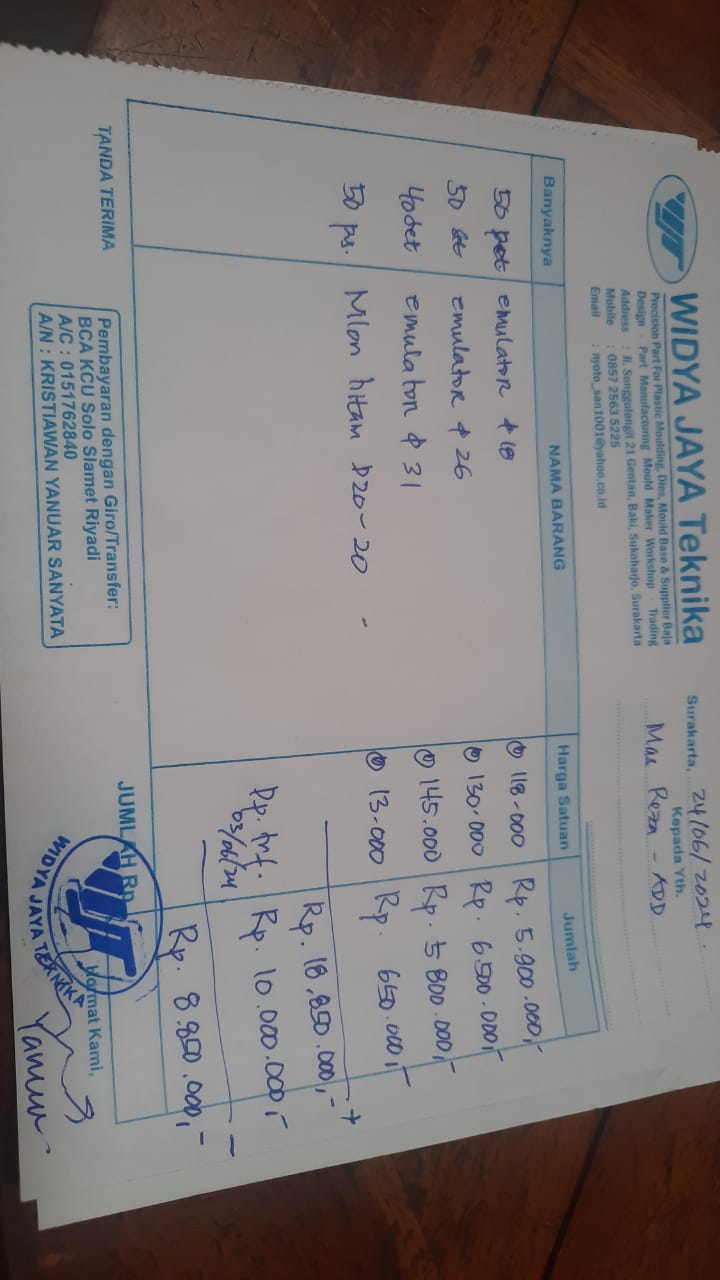 WJT
WIDYA JAYA Teknika
Precision Part For Plastic Moulding, Dies, Mould Base & Supplier Baja
Design · Part Manufacturing Mould Maker Workshop · Trading
Address : Jl. Songgolangit 21 Gentan, Baki, Sukoharjo, Surakarta
Mobile : 0857 2563 5225
Email : nyoto_san1001@yahoo.co.id
Surakarta, 24/06/2024.
Kepada Yth.
Mas Reza - ADD
Banyaknya NAMA BARANG Harga Satuan Jumlah
50 set emulator ϕ 18 @ 118.000 Rp. 5.900.000,-
50 set emulator ϕ 26 @ 130.000 Rp. 6.500.000,-
40 set emulator ϕ 31 @ 145.000 Rp. 5.800.000,-
50 ps. Mlon hitam D20-20 - @ 13.000 Rp. 650.000,-
+
Rp. 18.850.000,-
Dp. trf. 03/06/24 Rp. 10.000.000,-
-
Rp. 8.850.000,-
JUMLAH Rp.
TANDA TERIMA
Pembayaran dengan Giro/Transfer:
BCA KCU Solo Slamet Riyadi
A/C : 0151762840
A/N : KRISTIAWAN YANUAR SANYATA
Hormat Kami,
WJT
WIDYA JAYA TEKNIKA